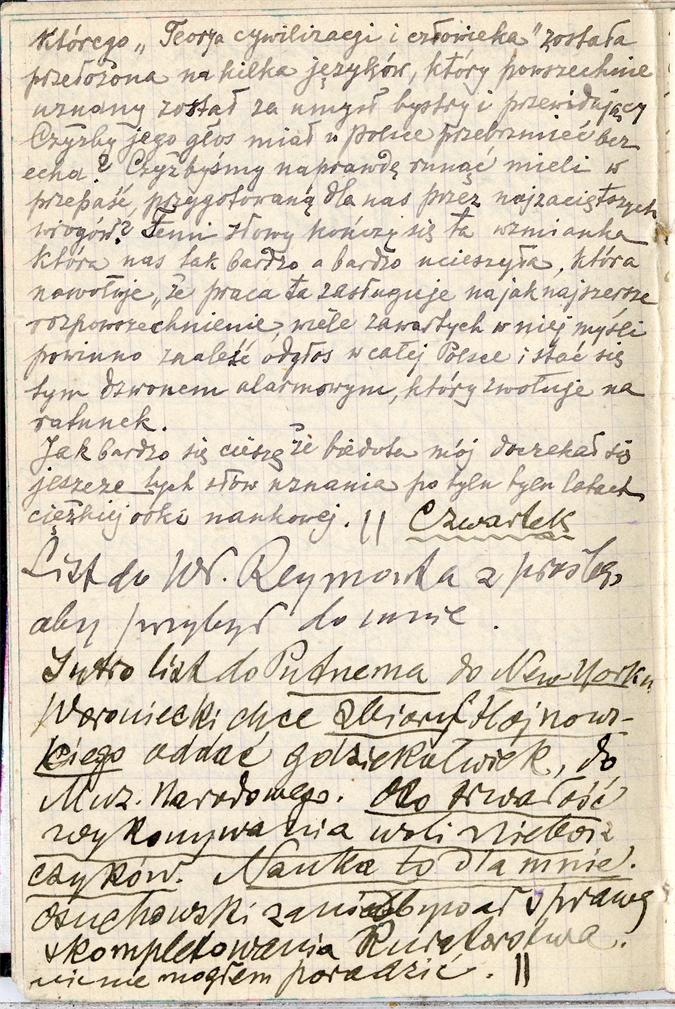 którego „Teorja cywilizacji i człowieka” została
przełożona na kilka języków, który powszechnie
uznany został za umysł bystry i przewidujący
Czyżby jego głos miał w Polsce przebrzmieć bez
echa? Czyżbyśmy naprawdę runąć mieli w
przepaść, przygotowaną dla nas przez najzaciętszych
wrogów? Temi słowy kończy się ta wzmianka
która nas tak bardzo a bardzo ucieszyła, która
nawołuje, że praca ta zasługuje na jak najszersze
rozpowszechnienie, wiele zawartych w niej myśli
powinno znaleźć odgłos w całej Polsce i stać się
tym dzwonem alarmowym, który zwołuje na
ratunek.
Jak bardzo się cieszę że biedota mój doczekał się
jeszcze tych słów uznania po tylu tylu latach
ciężkiej orki naukowej. || Czwartek
List do Wł. Reymonta z prośbą,
aby przybył do mnie.
Jutro list do Putnema do New-Yorku
Woroniecki chce zbiory Hojnows-
kiego oddać gdziekolwiek, do
Muz. Narodowego. Oto trwałość
wykonywania woli niebosz
czyków. Nauka to dla mnie.
Osuchowski sprawę
skompletowania Kuratorstwa.
nic nie mogłem poradzić. ||